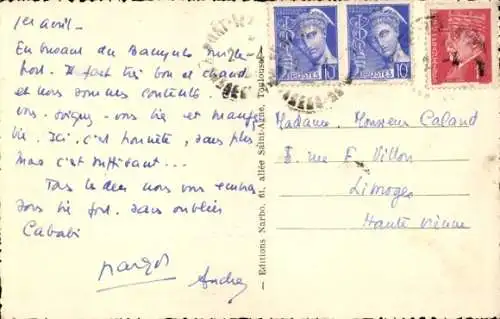 1er avril.
En buvant du Banyuls
port. Il fait très bon et chaud
et nous sommes contents.
vous soignez vous bien et mangez
bien. Ici, c'est honnête, sans plus
mais c'est suffisant...
Tous les deux nous vous embras
sons bien fort. sans oublier
Cababi
Margot
Andrey
Editions Narbo, 61, allée Saint-Agne, Toulouse
POSTES
10
POSTES
10
Madame, Monsieur Caland
8. rue F. Villon
Limoges
Haute Vienne